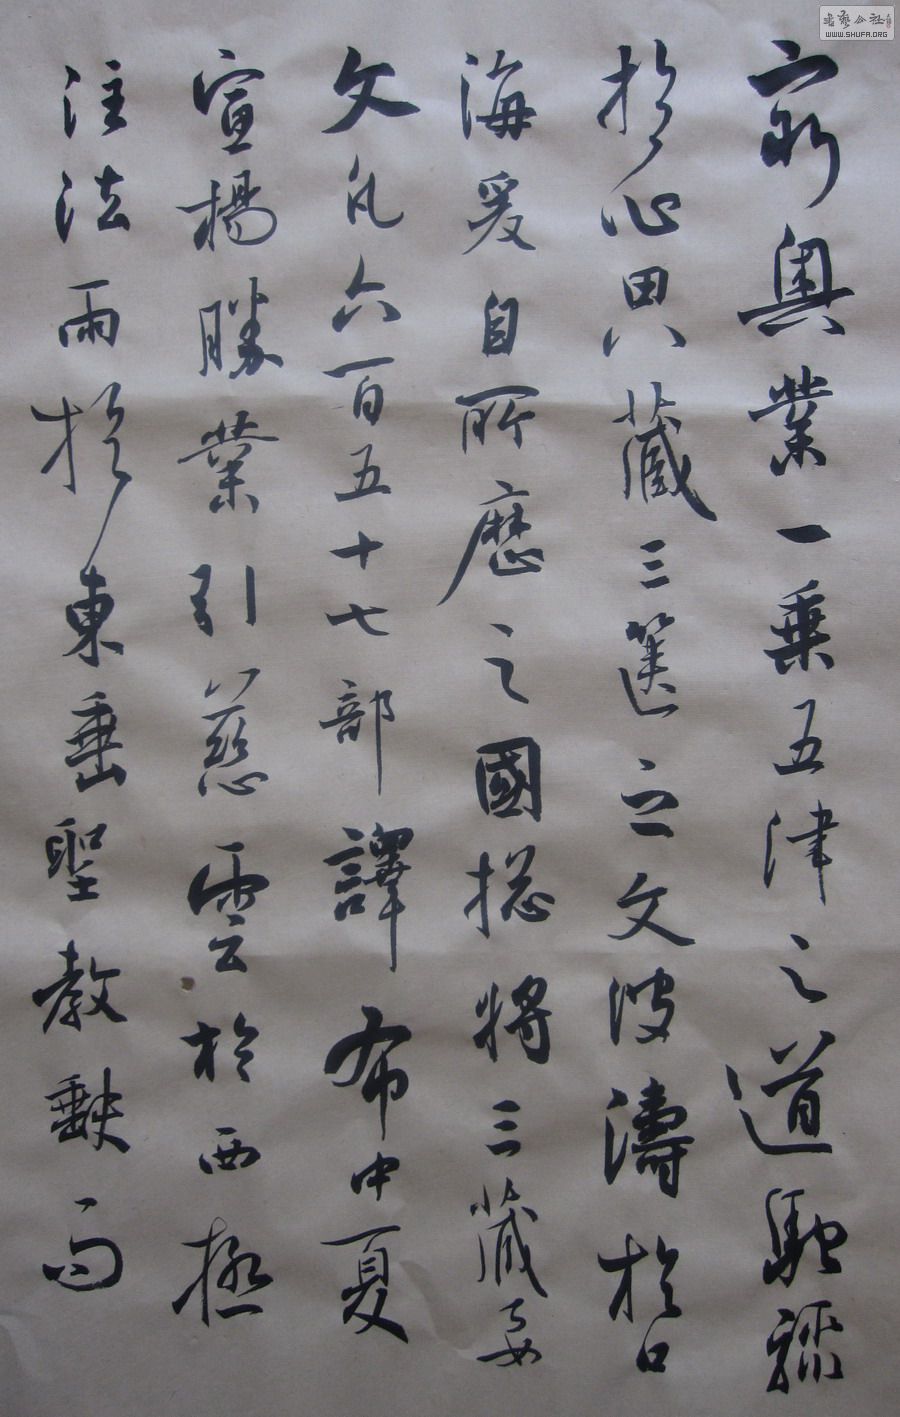 窮奧業一乘五津之道馳驟
於心田八藏三篋之文波濤於口
海爰自所歷之國揔將三藏要
文凡六百五十七部譯布中夏
宣揚勝業引慈雲於西極
注法雨於東垂聖教缺而
WWW.SHUFA.ORG